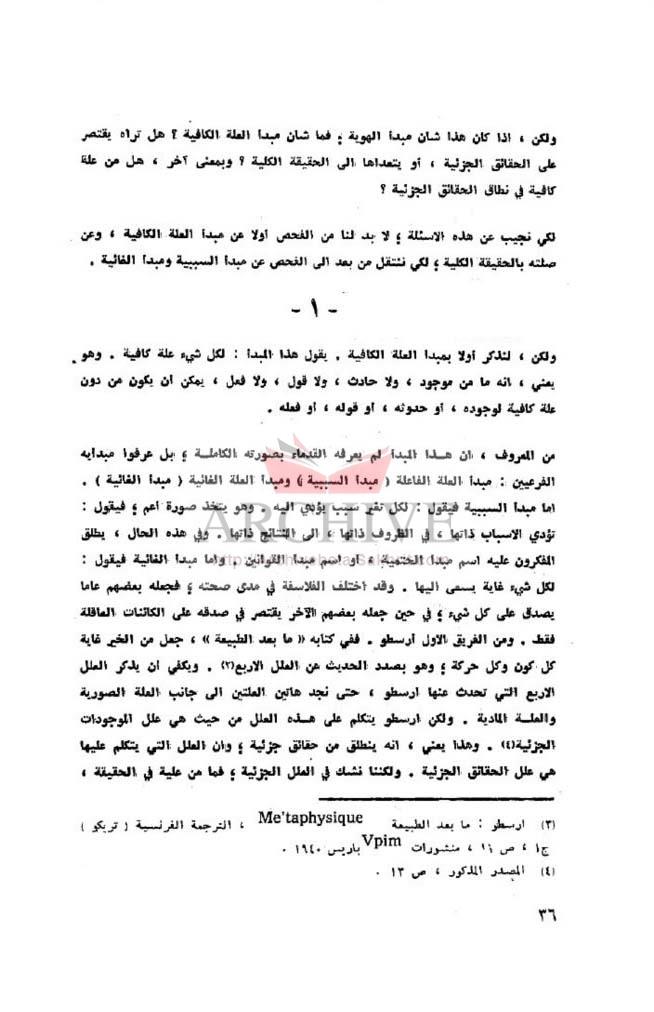 ولكن ، اذا كان هذا شان مبدأ الهوية ؛ فما شان مبدأ العلة الكافية ؟ هل تراه يقتصر
على الحقائق الجزئية ، أو يتعداها الى الحقيقة الكلية ؟ وبمعنى آخر ، هل من علة
كافية في نطاق الحقائق الجزئية ؟
لكي نجيب عن هذه الاسئلة ؛ لا بد لنا من الفحص أولا عن مبدأ العلة الكافية ، وعن
صلته بالحقيقة الكلية ؛ لكي ننتقل من بعد الى الفحص عن مبدأ السببية ومبدأ الغائية .
- ١ -
ولكن ، لنذكر أولا بمبدأ العلة الكافية . يقول هذا المبدأ : لكل شيء علة كافية . وهو
يعني ، انه ما من موجود ، ولا حادث ، ولا قول ، ولا فعل ، يمكن ان يكون من دون
علة كافية لوجوده ، أو حدوثه ، أو قوله ، أو فعله .
من المعروف ، ان هذا المبدأ لم يعرفه القدماء بصورته الكاملة ؛ بل عرفوا مبدأيه
الفرعيين : مبدأ العلة الفاعلة ( مبدأ السببية ) ومبدأ العلة الغائية ( مبدأ الغائية ) .
اما مبدأ السببية فيقول : لكل تغير سبب يؤدي اليه . وهو يتخذ صورة اعم ؛ فيقول :
تؤدي الاسباب ذاتها ، في الظروف ذاتها ، الى النتائج ذاتها . وفي هذه الحال ، يطلق
المفكرون عليه اسم مبدأ الحتمية ، أو اسم مبدأ القوانين . واما مبدأ الغائية فيقول :
لكل شيء غاية يسعى اليها . وقد اختلف الفلاسفة في مدى صحته ؛ فجعله بعضهم عاما
يصدق على كل شيء ؛ في حين جعله بعضهم الآخر يقتصر في صدقه على الكائنات العاقلة
فقط . ومن الفريق الاول أرسطو . ففي كتابه « ما بعد الطبيعة » ، جعل من الخير غاية
كل كون وكل حركة ؛ وهو بصدد الحديث عن العلل الاربع(٣) . ويكفي ان يذكر العلل
الاربع التي تحدث عنها ارسطو ، حتى نجد هاتين العلتين الى جانب العلة الصورية
والعلة المادية . ولكن ارسطو يتكلم على هذه العلل من حيث هي علل الموجودات
الجزئية(٤) . وهذا يعني ، انه ينطلق من حقائق جزئية ؛ وان العلل التي يتكلم عليها
هي علل الحقائق الجزئية . ولكننا نشك في العلل الجزئية ؛ فما من علية في الحقيقة ،
ARCHIVE
(٣) ارسطو : ما بعد الطبيعة Me'taphysique ، الترجمة الفرنسية ( تريكو )
ج١ ، ص ١٤ ، منشورات Vpim باريس ١٩٤٠ .
(٤) المصدر المذكور ، ص ١٣ .
٣٦